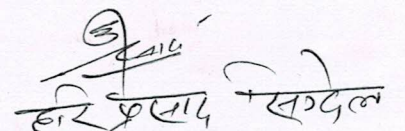 हरि प्रसाद सिग्देल